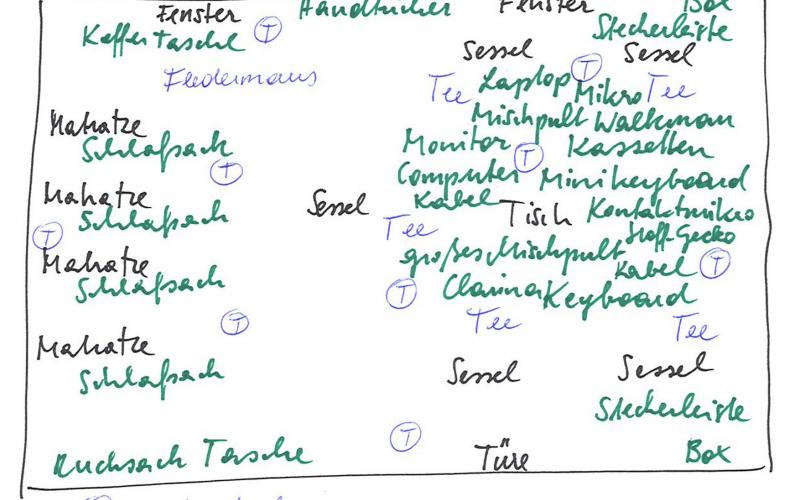 Fenster Handtücher Fenster Box
Koffer Tasche T Steckerleiste
Sessel Sessel
Fledermaus Laptop T
Tee Mikro Tee
Matratze Mischpult Walkman
Schlafsack Monitor T Kassetten
T Computer Minikeyboard
Matratze Kabel
Schlafsack Sessel Tisch Kontaktmikro
T Tee Stoff-Gecko
Matratze großes Mischpult Kabel T
Schlafsack T Keyboard
T Tee Tee
Matratze
Schlafsack Sessel Sessel
Steckerleiste
T
Rucksack Tasche Türe Box